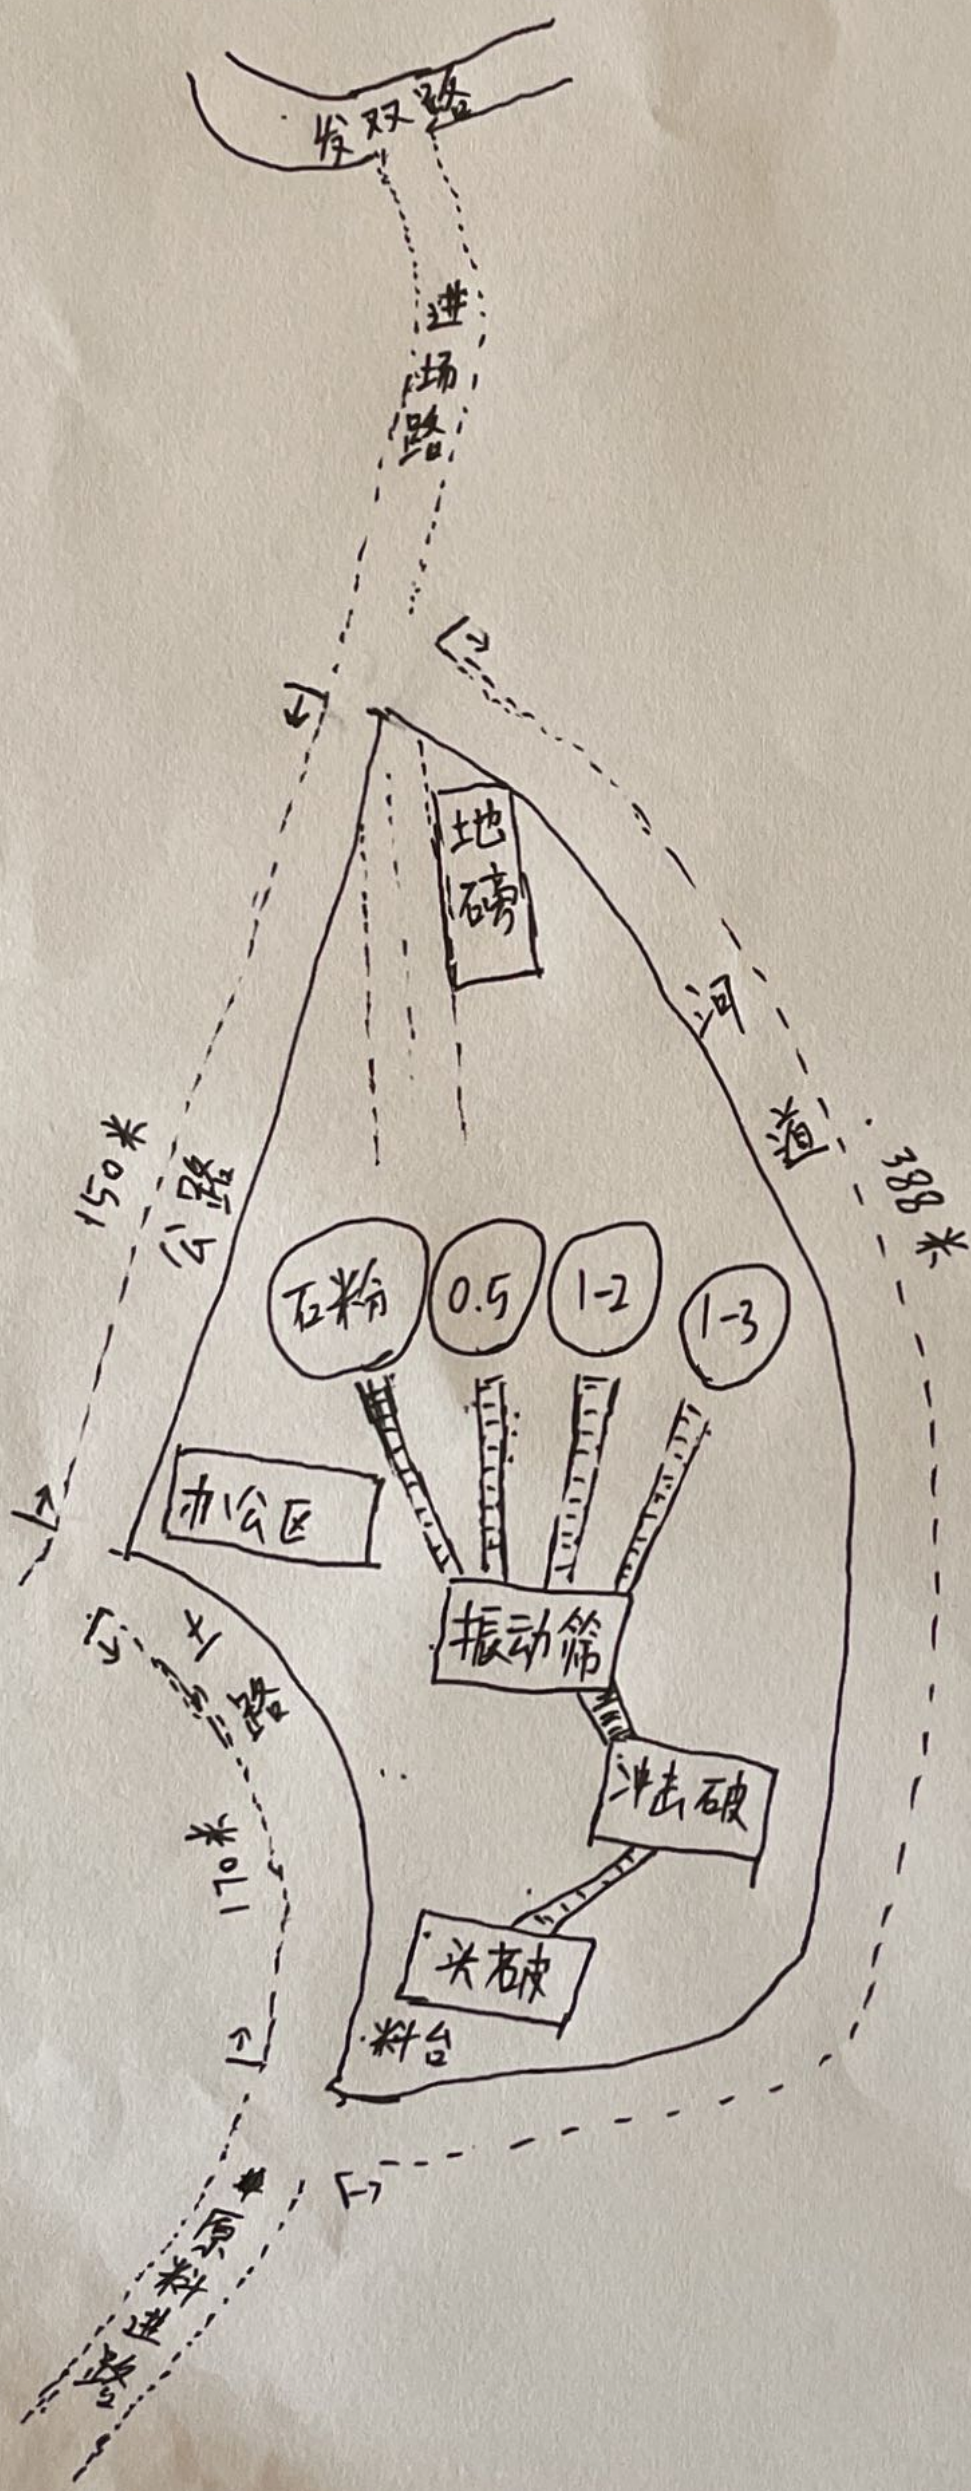 发双路
进场路
地磅
河道
388米
150米
公路
石粉
0.5
1-2
1-3
办公区
振动筛
土路
冲击破
170米
头破
料台
原料进路